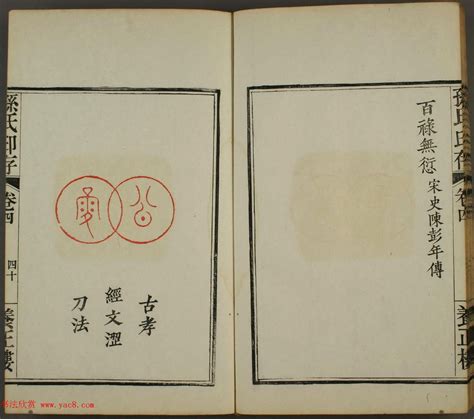 孫氏印存
卷四
養正樓
百祿無愆宋史陳彭年傳
公
古孝
經文澀
刀法
孫氏印存
卷四
四十
養正樓
书法欣赏 www.yac8.com